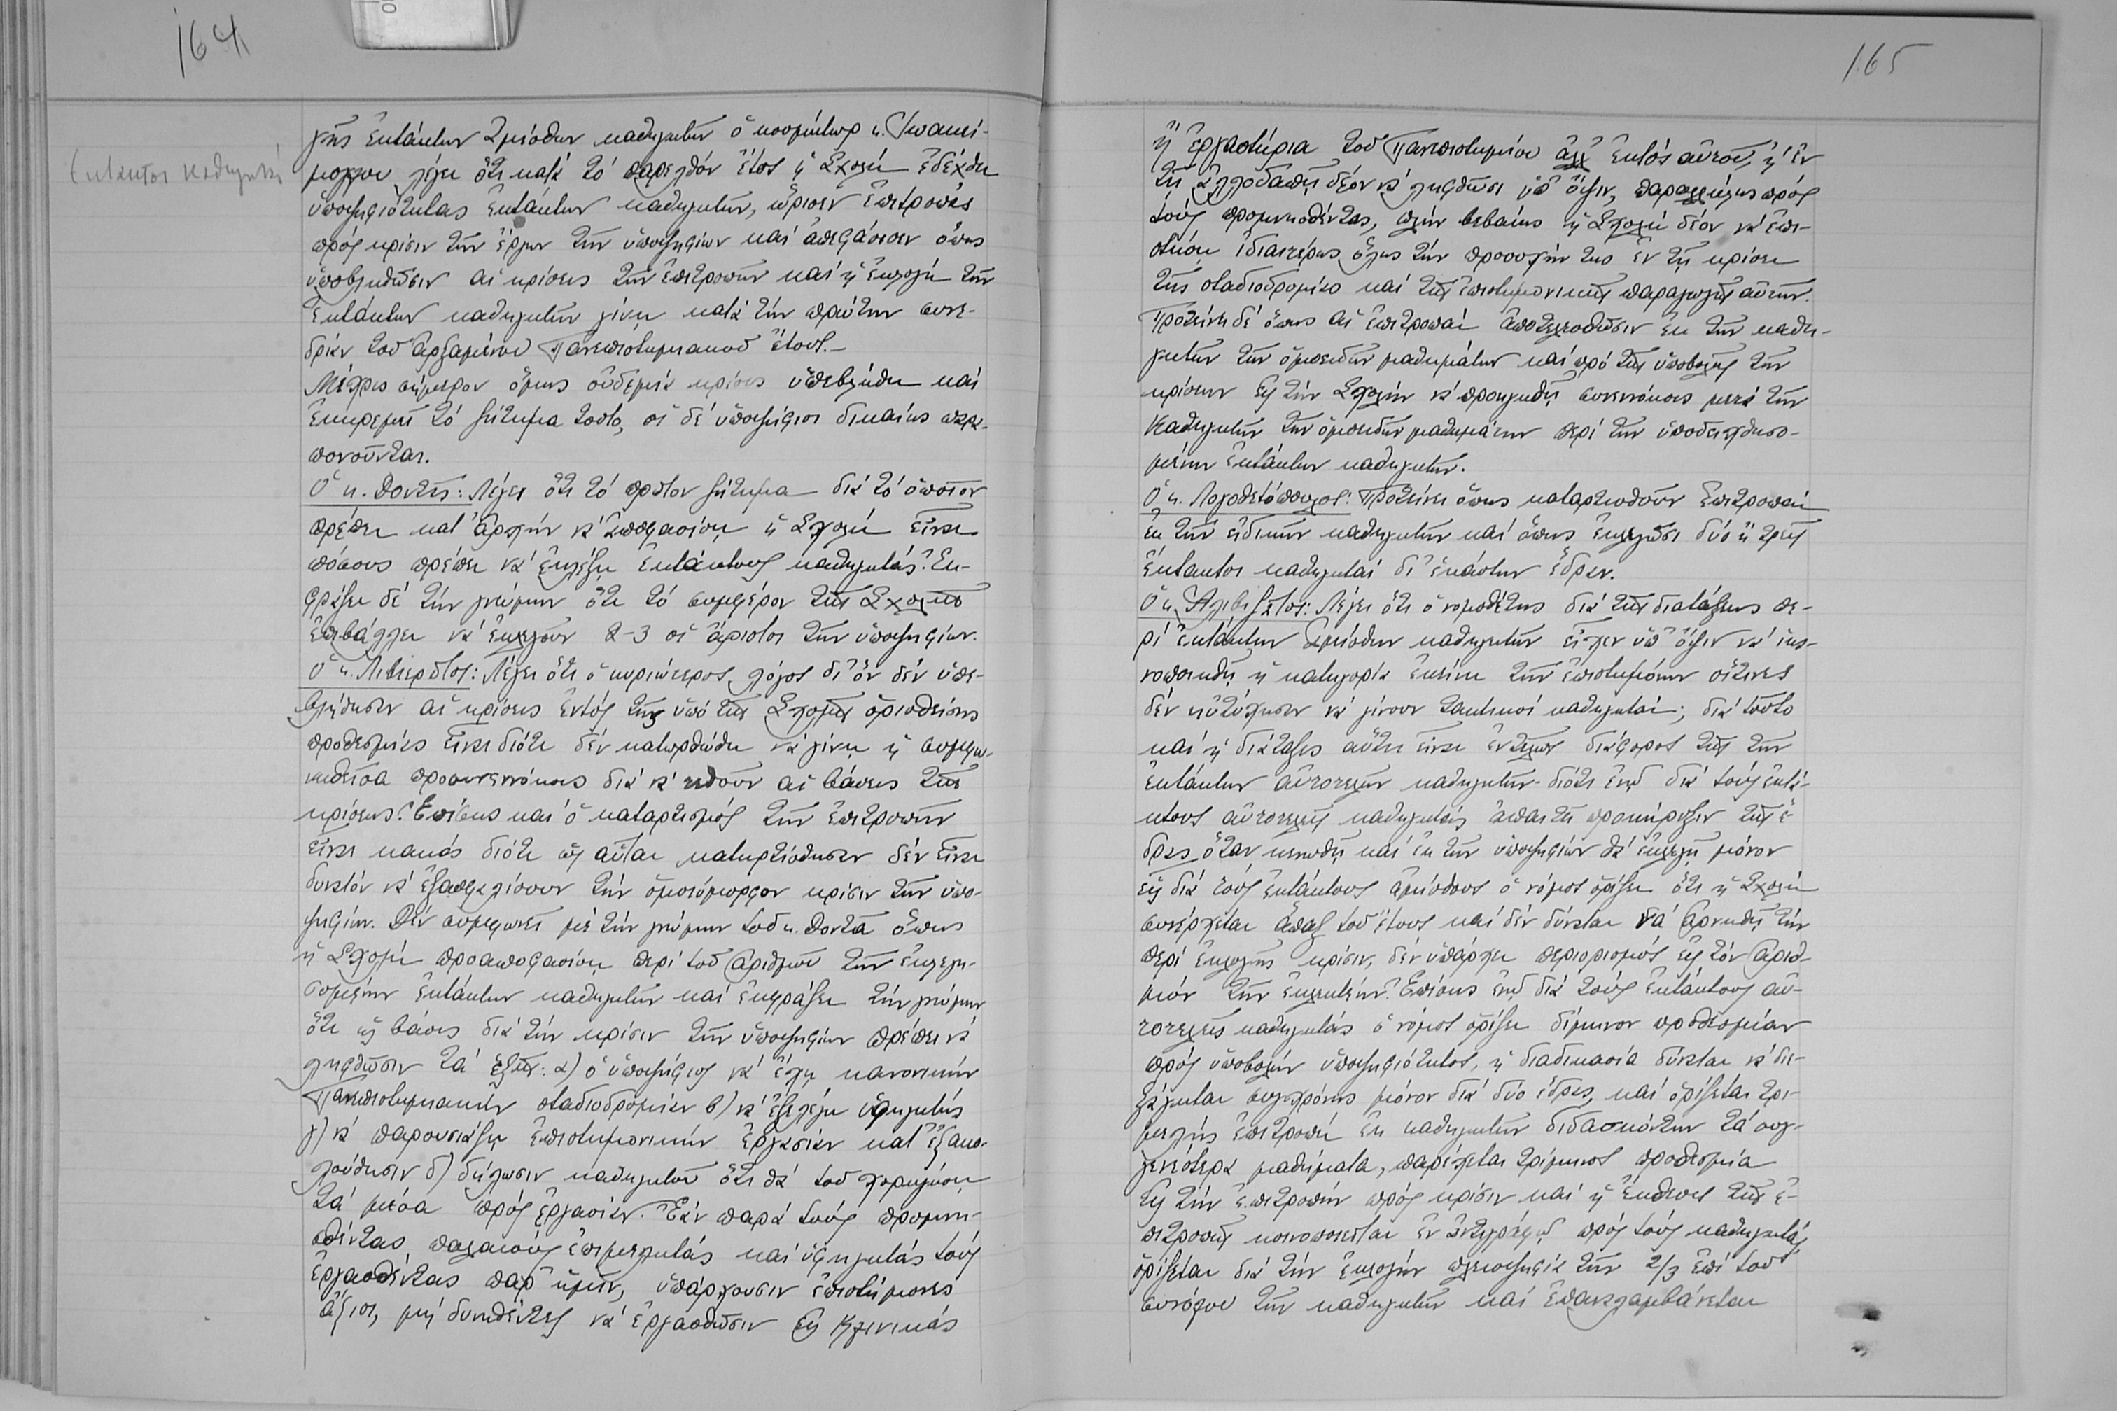 164
Ἔκτακτοι καθηγηταί
γῆς ἐκτάκτων ἀμίσθων καθηγητῶν ὁ κοσμήτωρ κ. Ἰωακεί-
μογλου λέγει ὅτι κατά τό παρελθόν ἔτος ἡ Σχολή ἐδέχθη
ὑποψηφιότητας ἐκτάκτων καθηγητῶν, ὥρισεν ἐπιτροπάς
πρός κρίσιν τῶν ἔργων τῶν ὑποψηφίων καί ἀπεφάσισεν ὅπως
ὑποβληθῶσιν αἱ κρίσεις τῶν ἐπιτροπῶν καί ἡ ἐκλογή τῶν
ἐκτάκτων καθηγητῶν γίνῃ κατά τήν πρώτην συνε-
δρίαν τοῦ ἀρξαμένου Πανεπιστημιακοῦ ἔτους.-
Μέχρις σήμερον ὅμως οὐδεμία κρίσις ὑπεβλήθη καί
ἐκκρεμεῖ τό ζήτημα τοῦτο, οἱ δέ ὑποψήφιοι δικαίως παρα-
πονοῦνται.
Ὁ κ. Δοντᾶς: Λέγει ὅτι τό πρῶτον ζήτημα διά τό ὁποῖον
πρέπει κατ' ἀρχήν νά ἀποφασίσῃ ἡ Σχολή εἶναι
πόσους πρέπει νά ἐκλέξῃ ἐκτάκτους καθηγητάς. Ἐκ-
φράζει δέ τήν γνώμην ὅτι τό συμφέρον τῆς Σχολῆς
ἐπιβάλλει νά ἐκλεγοῦν 2-3 οἱ ἄριστοι τῶν ὑποψηφίων.
Ὁ κ. Λιβιεράτος: Λέγει ὅτι ὁ κυριώτερος λόγος δι' ὅν δέν ὑπε-
βλήθησαν αἱ κρίσεις ἐντός τῆς ὑπό τῆς Σχολῆς ὁρισθείσης
προθεσμίας εἶναι διότι δέν κατωρθώθη νά γίνῃ ἡ συμφω-
νηθεῖσα προσυνεννόησις διά νά τεθοῦν αἱ βάσεις τῆς
κρίσεως. Ἐπίσης καί ὁ καταρτισμός τῶν ἐπιτροπῶν
εἶναι κακός διότι ὡς αὗται κατηρτίσθησαν δέν εἶναι
δυνατόν νά ἐξασφαλίσουν τήν ὁμοιόμορφον κρίσιν τῶν ὑπο-
ψηφίων. Δέν συμφωνεῖ μέ τήν γνώμην τοῦ κ. Δοντᾶ ὅπως
ἡ Σχολή προαποφασίσῃ περί τοῦ ἀριθμοῦ τῶν ἐκλεγη-
σομένων ἐκτάκτων καθηγητῶν καί ἐκφράζει τήν γνώμην
ὅτι ὡς βάσις διά τήν κρίσιν τῶν ὑποψηφίων πρέπει νά
ληφθῶσιν τά ἑξῆς: α) ὁ ὑποψήφιος νά ἔχῃ κανονικήν
Πανεπιστημιακήν σταδιοδρομίαν β) νά ἐξελέγη ὑφηγητής
γ) νά παρουσιάζῃ ἐπιστημονικήν ἐργασίαν κατ' ἐξακο-
λούθησιν δ) δήλωσιν καθηγητοῦ ὅτι θά τοῦ χορηγήσῃ
τά μέσα πρός ἐργασίαν. Ἐάν παρά τούς προμνη-
σθέντας παλαιούς ἐπιμελητάς καί ὑφηγητάς τούς
ἐργασθέντας παρ' ἡμῖν, ὑπάρχουσιν ἐπιστήμονες
ἄξιοι, μή δυνηθέντες νά ἐργασθῶσιν εἰς Κλινικάς
165
ἤ ἐργαστήρια τοῦ Πανεπιστημίου ἀλλ' ἐκτός αὐτοῦ, ἤ ἐν
τῇ ἀλλοδαπῇ δέον νά ληφθῶσι ὑπ' ὄψιν, παραλλήλως πρός
τούς προμνησθέντας, πλήν βεβαίως ἡ Σχολή δέον νά ἐπι-
στήσῃ ἰδιαιτέρως ὅλως τήν προσοχήν της ἐν τῇ κρίσει
τῆς σταδιοδρομίας καί τῆς ἐπιστημονικῆς παραγωγῆς αὐτῶν.
Προτείνει δέ ὅπως αἱ ἐπιτροπαί ἀποτελεσθῶσιν ἐκ τῶν καθη-
γητῶν τῶν ὁμοειδῶν μαθημάτων καί πρό τῆς ὑποβολῆς τῶν
κρίσεων εἰς τήν Σχολήν νά προηγηθῇ συνεννόησις μετά τῶν
Καθηγητῶν τῶν ὁμοειδῶν μαθημάτων περί τῶν ὑποδειχθησο-
μένων ἐκτάκτων καθηγητῶν.
Ὁ κ. Λογοθετόπουλος: Προτείνει ὅπως καταρτισθοῦν ἐπιτροπαί
ἐκ τῶν εἰδικῶν καθηγητῶν καί ὅπως ἐκλεγῶσι δύο ἤ τρεῖς
ἔκτακτοι καθηγηταί δι' ἑκάστην ἕδραν.
Ὁ κ. Ἀλιβιζάτος: Λέγει ὅτι ὁ νομοθέτης διά τῆς διατάξεως πε-
ρί ἐκτάκτων ἀμίσθων καθηγητῶν εἶχεν ὑπ' ὄψιν νά ἱκα-
νοποιηθῇ ἡ κατηγορία ἐκείνη τῶν ἐπιστημόνων οἵτινες
δέν ηὐτύχησαν νά γίνουν τακτικοί καθηγηταί, διά τοῦτο
καί ἡ διάταξις αὕτη εἶναι ἐντελῶς διάφορος τῆς τῶν
ἐκτάκτων αὐτοτελῶν καθηγητῶν. διότι ἐνῷ διά τούς ἐκτά-
κτους αὐτοτελεῖς καθηγητάς ἀπαιτεῖ προκήρυξιν τῆς ἕ-
δρας ὅταν κενωθῇ καί ἐκ τῶν ὑποψηφίων θά ἐκλεγῇ μόνον
εἷς διά τούς ἐκτάκτους ἀμίσθους ὁ νόμος ὁρίζει ὅτι ἡ Σχολή
συνέρχεται ἅπαξ τοῦ ἔτους καί δέν δύναται νά ἀρνηθῇ τήν
περί ἐκλογῆς κρίσιν, δέν ὑπάρχει περιορισμός εἰς τόν ἀριθ-
μόν τῶν ἐκλεκτέων. Ἐπίσης ἐνῷ διά τούς ἐκτάκτους αὐ-
τοτελεῖς καθηγητάς ὁ νόμος ὁρίζει δίμηνον προθεσμίαν
πρός ὑποβολήν ὑποψηφιότητος, ἡ διαδικασία δύναται νά διε-
ξάγηται συγχρόνως μόνον διά δύο ἕδρας, καί ὁρίζεται τρι-
μελής ἐπιτροπή ἐκ καθηγητῶν διδασκόντων τά συγ-
γενέστερα μαθήματα, παρέχεται τρίμηνος προθεσμία
εἰς τήν ἐπιτροπήν πρός κρίσιν καί ἡ ἔκθεσις τῆς ἐ-
πιτροπῆς κοινοποιεῖται ἐν ἀντιγράφῳ πρός τούς καθηγητάς
ὁρίζεται διά τήν ἐκλογήν πλειοψηφία τῶν 2/3 ἐπί τοῦ
συνόλου τῶν καθηγητῶν καί ἐπαναλαμβάνεται